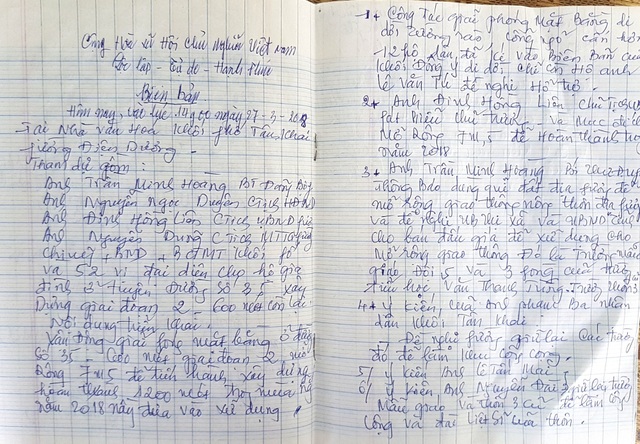 Cộng Hòa Xã Hội Chủ Nghĩa Việt Nam
Độc lập - Tự do - Hạnh Phúc
Biên bản
Hôm nay, vào lúc 14 giờ ngày 27-3-2018
Tại Nhà Văn Hóa Khối phố Tân Khai
phường Điện Dương.
Tham dự gồm:
Anh Trần Minh Hoàng Bí Đảng
Anh Nguyễn Ngọc Duyên CTịch HĐND
Anh Đinh Hồng Liên CTịch UBND
Anh Nguyễn Dũng CTịch MTTQ
Chi ủy, BND, BCTMT Khối phố
và 52 vị đại diện cho hộ gia
đình 3 tuyến Đường Số 35 xây
Dựng giai đoạn 2 - 600 mét còn lại.
Nội dung triển khai.
Xây dựng giải phóng mặt bằng ở đường
Số 35 - 600 mét giai đoạn 2 mở
Rộng 7m,5 để tiến hành xây dựng
hoàn thành 1200 mét
năm 2018 này đưa vào sử dụng
1+ Công Tác giải phóng Mặt Bằng di
dời
12 hộ dân đã kê vào Biên Bản của
Khối Đồng ý di dời chỉ còn Hộ anh
Lê Văn Tí đề nghị Hỗ trợ.
2+ Anh Đinh Hồng Liên Chủ Tịch
phát biểu chủ trương - và Mức
Mở Rộng 7m,5 để Hoàn thành
năm 2018
3+ Anh Trần Minh Hoàng Bí thư
Thông Báo dùng quỹ đất địa phương để
mở rộng giao thông nông thôn địa
và đề nghị UBND thị xã và UBND
cho bán đấu giá để sử dụng cho
Mở rộng giao thông Đó là trường
giáo Đội 5 và 3 phòng của
tiểu học Văn Thanh Tùng. Trường
4+ ý kiến của Anh phạm Ba nhân
dân Khối Tân Khai
- Đề nghị phường giữ lại các
đó để làm khu công cộng.
5/ ý Kiến Anh Lê Tấn Mai
6/ ý Kiến Anh Nguyễn Đài
Mẫu giáo và thôn 3 cũ để làm
công và đài Liệt Sĩ của thôn.